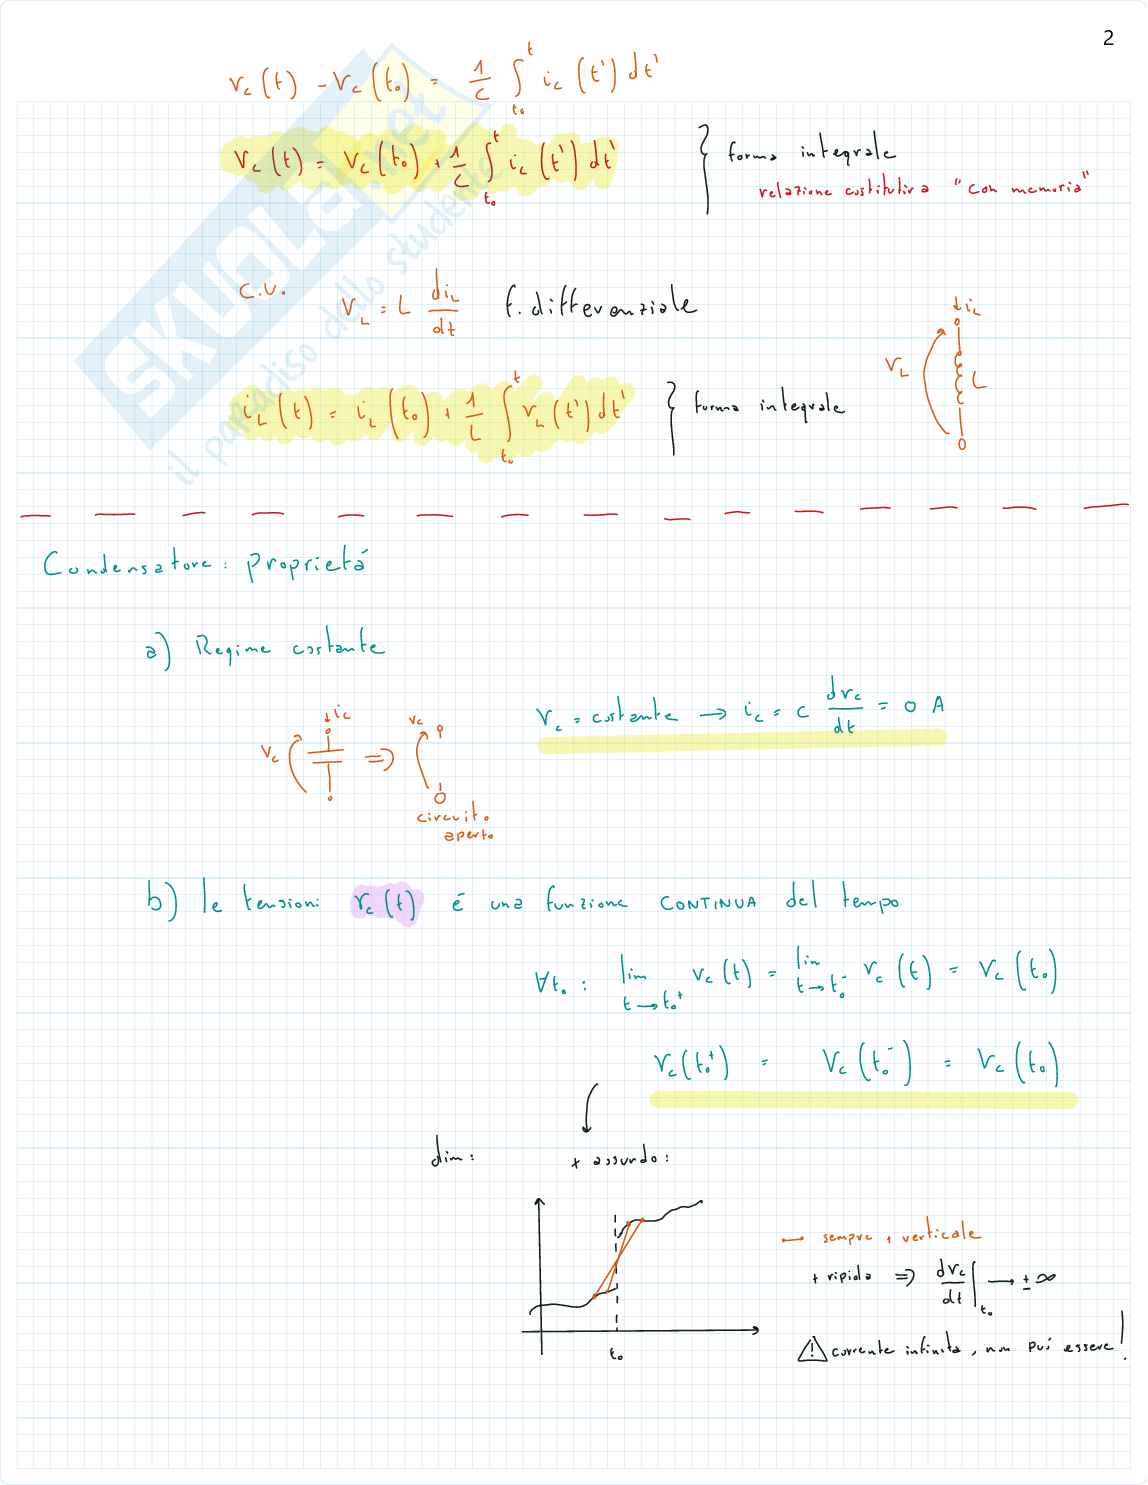 2
v_c(t) - v_c(t_0) = 1/C ∫_{t_0}^{t} i_c(t') dt'
v_c(t) = v_c(t_0) + 1/C ∫_{t_0}^{t} i_c(t') dt' } forma integrale
relazione costitutiva "con memoria"
C.U. V_L = L di_L/dt f. differenziale
↓i_L
V_L
L
i_L(t) = i_L(t_0) + 1/L ∫_{t_0}^{t} v_L(t') dt' } forma integrale
SKUOLA.net
il paradiso dello studente
Condensatore: proprietá
a) Regime costante
↓i_c
v_c
v_c ⇒
circuito
aperto
v_c = costante → i_c = C dv_c/dt = 0 A
b) le tensioni v_c(t) é una funzione CONTINUA del tempo
∀t_0 : lim_{t→t_0^+} v_c(t) = lim_{t→t_0^-} v_c(t) = v_c(t_0)
v_c(t_0^+) = v_c(t_0^-) = v_c(t_0)
dim: x assurdo:
t_0
sempre + verticale
+ ripida ⇒ dv_c/dt |_{t_0} → ± ∞
⚠ corrente infinita, non puó essere!